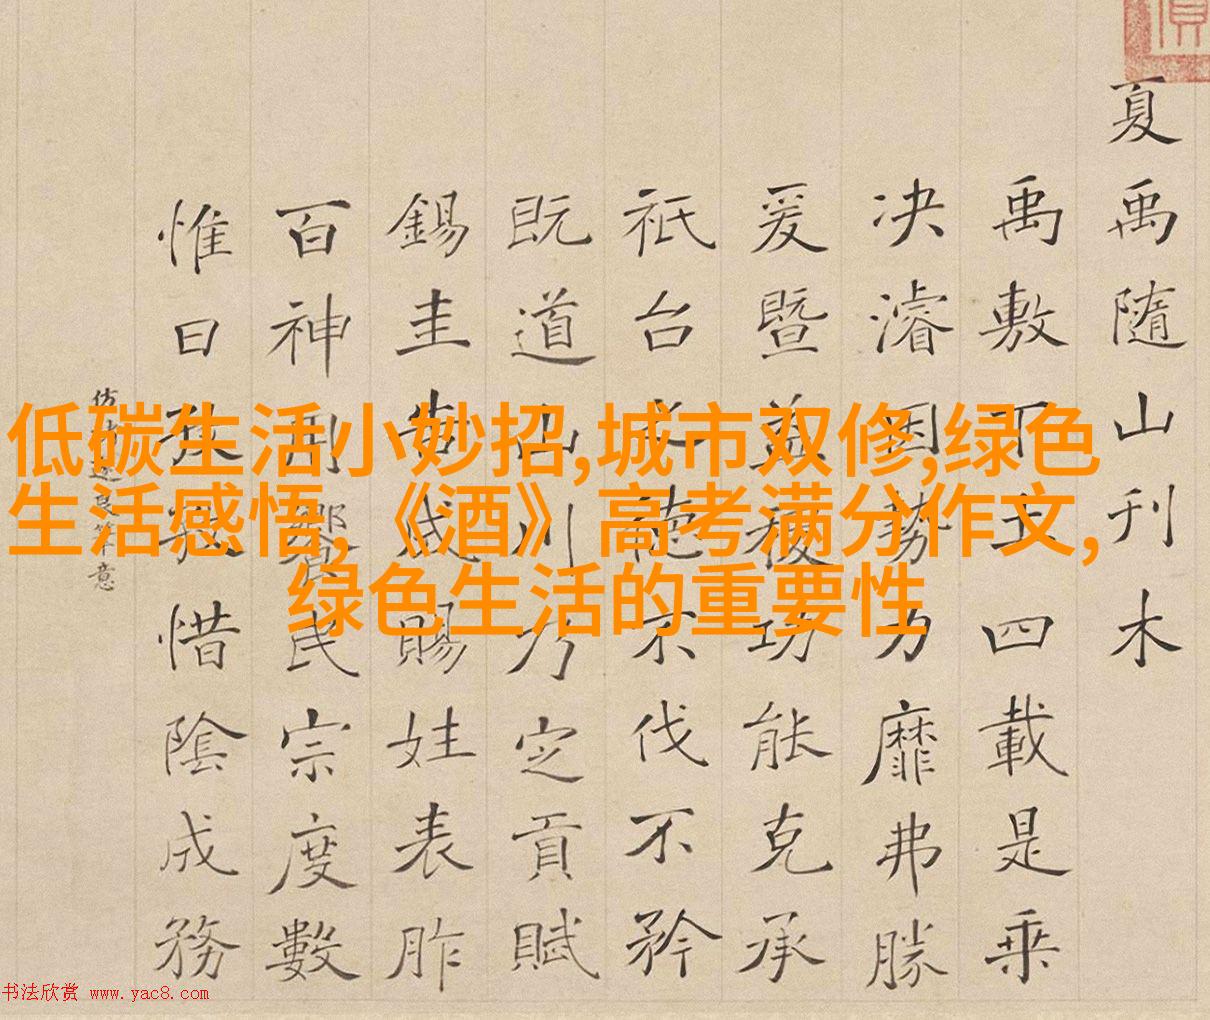 夏禹隨山刊木
禹敷下土四載是乘
决濬力靡弗勝
爰暨益稷功能克承
祇台德不伐不矜
既道山川乃定貢賦
錫圭告成賜姓表胙
百神饗民宗度數
惟日孜孜惜陰成務
仿遂良筆意
低碳生活小妙招,城市双修,绿色
生活感悟,《酒》高考满分作文,
绿色生活的重要性
书法欣赏 www.yac8.com